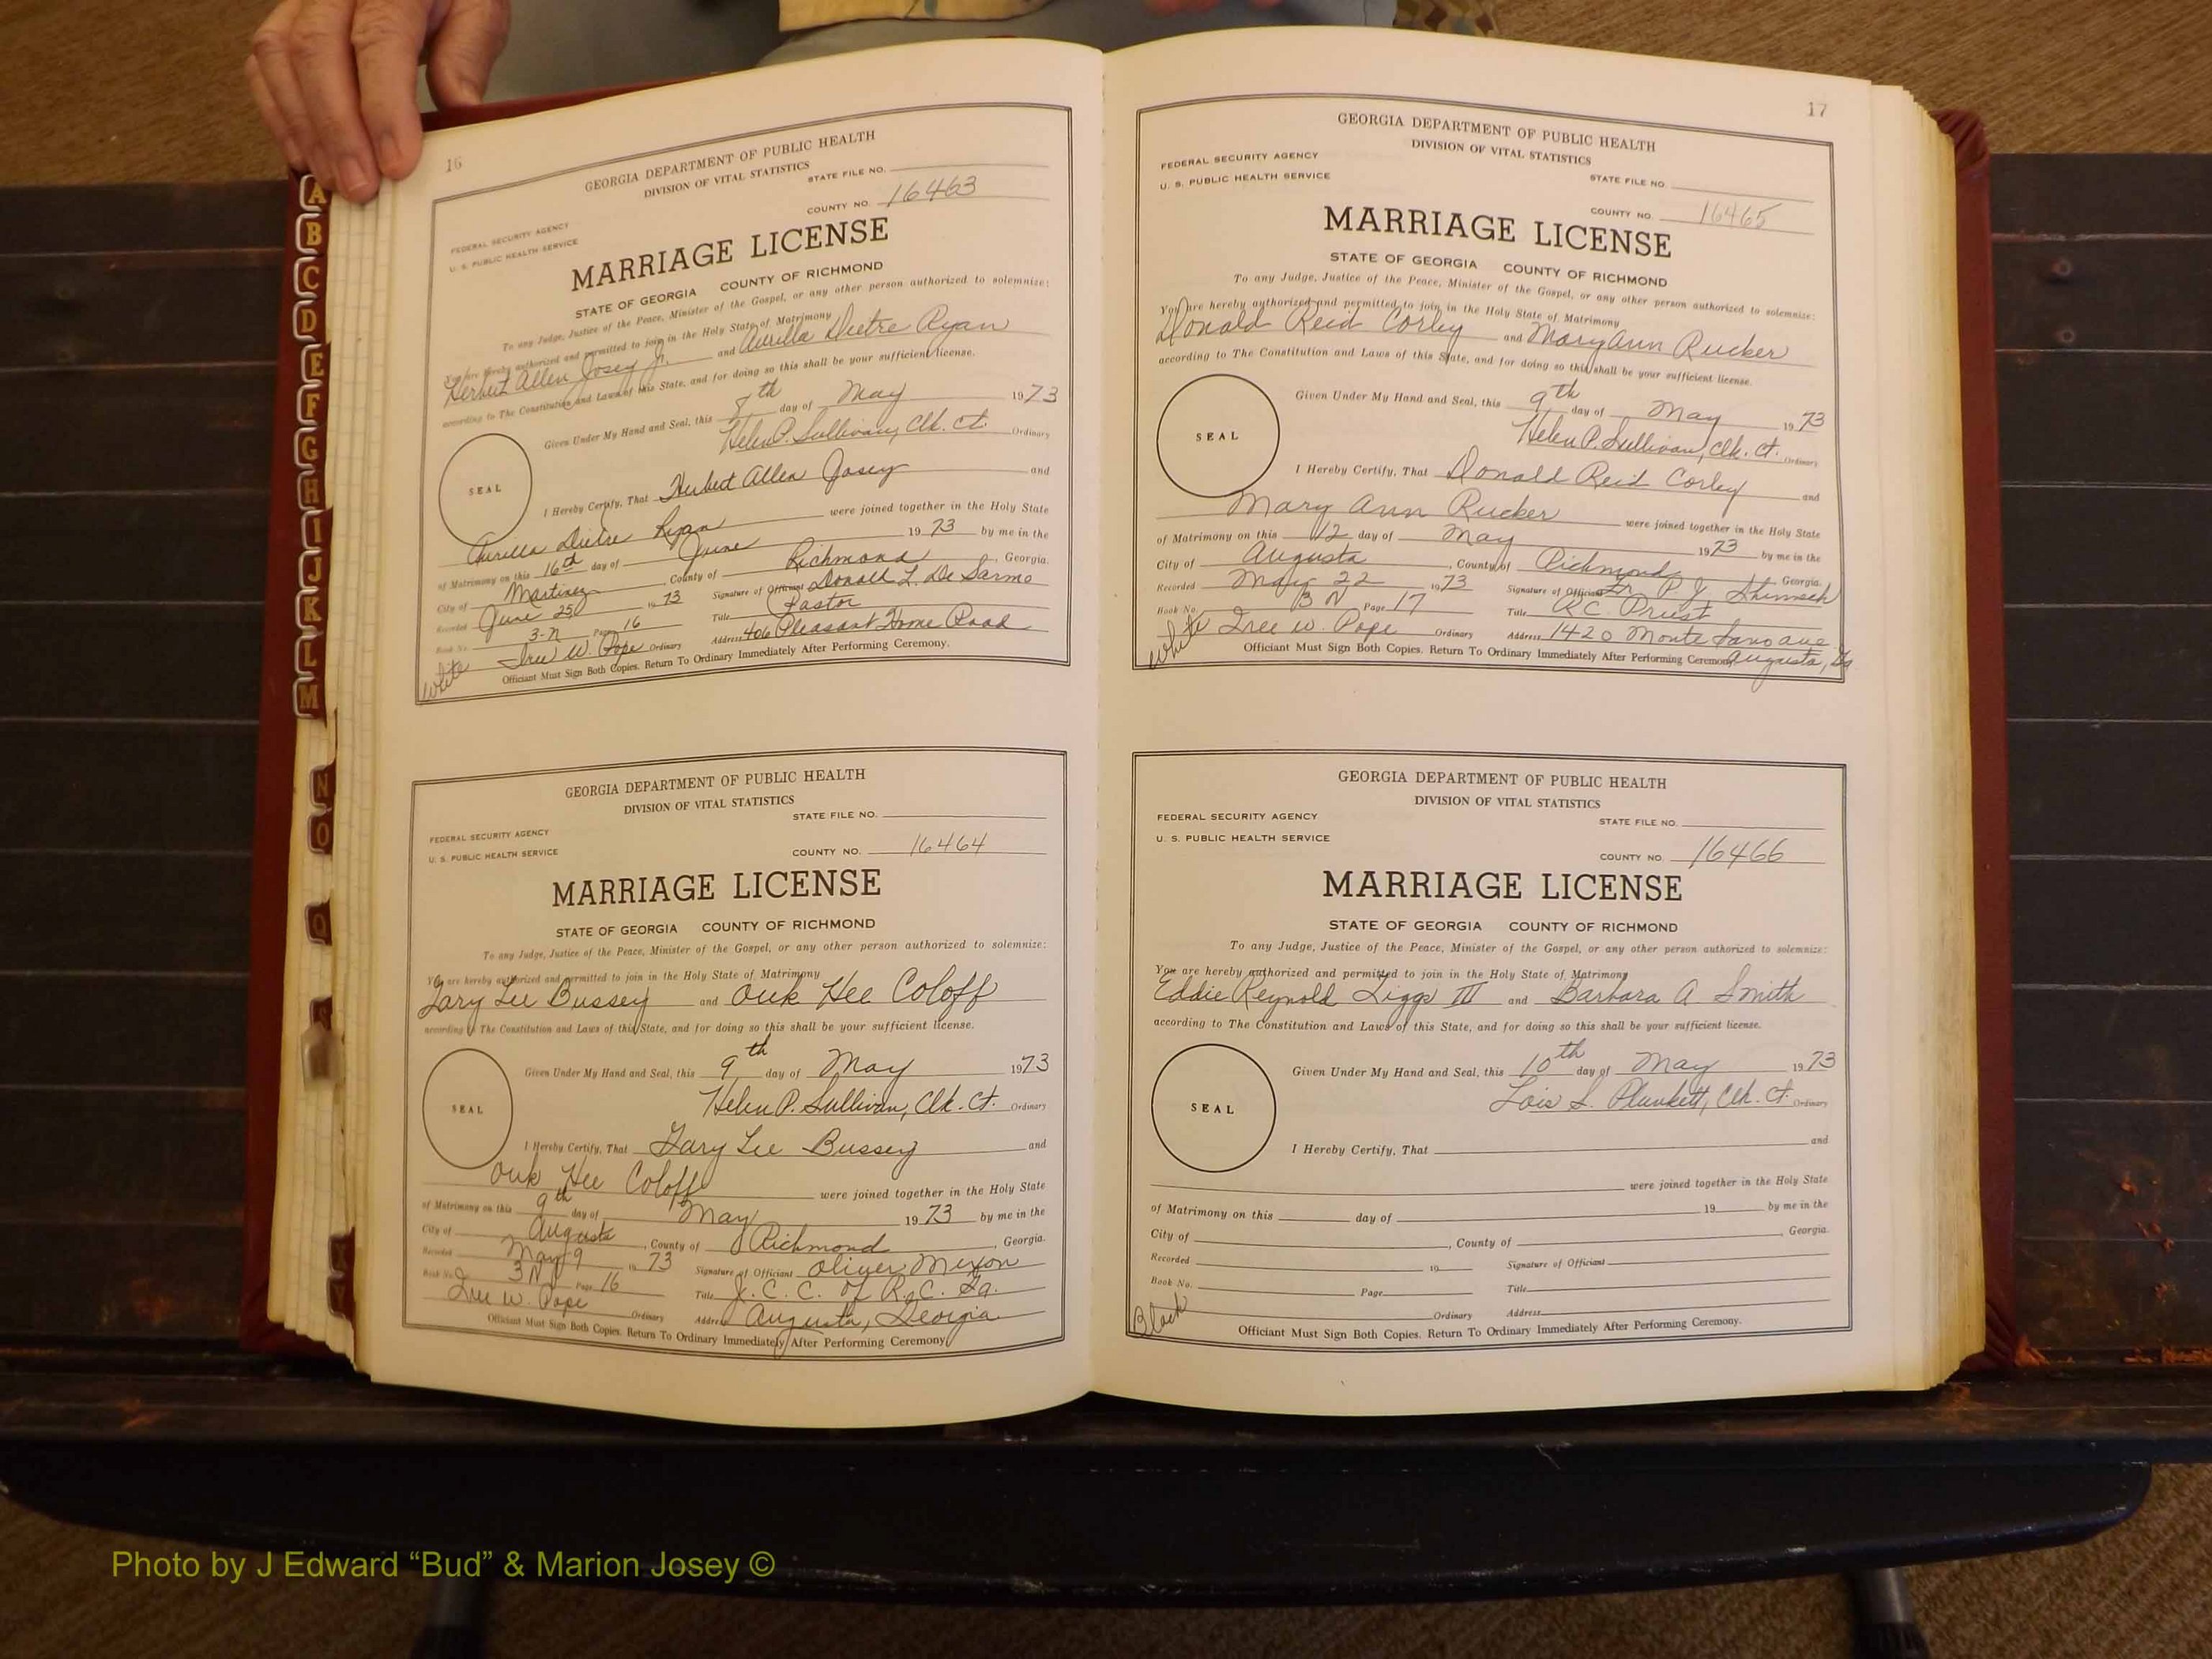 A
B
C
D
E
F
G
H
I
J
K
L
M
N
O
Q
S
X
Y
16
GEORGIA DEPARTMENT OF PUBLIC HEALTH
DIVISION OF VITAL STATISTICS
STATE FILE NO.
COUNTY NO. 16463
FEDERAL SECURITY AGENCY
U. S. PUBLIC HEALTH SERVICE
MARRIAGE LICENSE
STATE OF GEORGIA COUNTY OF RICHMOND
To any Judge, Justice of the Peace, Minister of the Gospel, or any other person authorized to solemnize:
You are hereby authorized and permitted to join in the Holy State of Matrimony
Herbert Allen Josey Jr. and Aurilla Dietre Ryan
according to The Constitution and Laws of this State, and for doing so this shall be your sufficient license.
Given Under My Hand and Seal, this 8th day of May 1973
Helen P. Sullivan, Clk. Ct. Ordinary
SEAL
I Hereby Certify, That Herbert Allen Josey and
Aurilla Dietre Ryan were joined together in the Holy State
of Matrimony on this 16th day of June 1973 by me in the
City of Martinez, County of Richmond, Georgia.
Recorded June 25 1973 Signature of Officiant Donald L. De Sarmo
Book No. 3-N Page 16 Title Pastor
Iree W. Pope Ordinary Address 406 Pleasant Home Road
White
Officiant Must Sign Both Copies. Return To Ordinary Immediately After Performing Ceremony.
GEORGIA DEPARTMENT OF PUBLIC HEALTH
DIVISION OF VITAL STATISTICS
STATE FILE NO.
FEDERAL SECURITY AGENCY
U. S. PUBLIC HEALTH SERVICE
COUNTY NO. 16464
MARRIAGE LICENSE
STATE OF GEORGIA COUNTY OF RICHMOND
To any Judge, Justice of the Peace, Minister of the Gospel, or any other person authorized to solemnize:
You are hereby authorized and permitted to join in the Holy State of Matrimony
Gary Lee Bussey and Ouk Hee Coloff
according to The Constitution and Laws of this State, and for doing so this shall be your sufficient license.
Given Under My Hand and Seal, this 9th day of May 1973
Helen P. Sullivan, Clk. Ct. Ordinary
SEAL
I Hereby Certify, That Gary Lee Bussey and
Ouk Hee Coloff were joined together in the Holy State
of Matrimony on this 9th day of May 1973 by me in the
City of Augusta, County of Richmond, Georgia.
Recorded May 9 1973 Signature of Officiant Oliver Mixon
Book No. 3N Page 16 Title J. C. C. of R. C. Ga.
Iree W. Pope Ordinary Address Augusta, Georgia
Officiant Must Sign Both Copies. Return To Ordinary Immediately After Performing Ceremony
17
GEORGIA DEPARTMENT OF PUBLIC HEALTH
DIVISION OF VITAL STATISTICS
FEDERAL SECURITY AGENCY
U. S. PUBLIC HEALTH SERVICE
STATE FILE NO.
COUNTY NO. 16465
MARRIAGE LICENSE
STATE OF GEORGIA COUNTY OF RICHMOND
To any Judge, Justice of the Peace, Minister of the Gospel, or any other person authorized to solemnize:
You are hereby authorized and permitted to join in the Holy State of Matrimony
Donald Reid Corley and Mary Ann Rucker
according to The Constitution and Laws of this State, and for doing so this shall be your sufficient license.
Given Under My Hand and Seal, this 9th day of May 1973
Helen P. Sullivan, Clk. Ct. Ordinary
SEAL
I Hereby Certify, That Donald Reid Corley and
Mary Ann Rucker were joined together in the Holy State
of Matrimony on this 12 day of May 1973 by me in the
City of Augusta, County of Richmond, Georgia.
Recorded May 22 1973 Signature of Officiant Fr. P. J.
Book No. 3N Page 17 Title R C. Priest
Iree W. Pope Ordinary Address 1420 Monte Sano Ave
White
Augusta, Ga
Officiant Must Sign Both Copies. Return To Ordinary Immediately After Performing Ceremony
GEORGIA DEPARTMENT OF PUBLIC HEALTH
DIVISION OF VITAL STATISTICS
FEDERAL SECURITY AGENCY
U. S. PUBLIC HEALTH SERVICE
STATE FILE NO.
COUNTY NO. 16466
MARRIAGE LICENSE
STATE OF GEORGIA COUNTY OF RICHMOND
To any Judge, Justice of the Peace, Minister of the Gospel, or any other person authorized to solemnize:
You are hereby authorized and permitted to join in the Holy State of Matrimony
Eddie Reynold Liggs III and Barbara A. Smith
according to The Constitution and Laws of this State, and for doing so this shall be your sufficient license.
Given Under My Hand and Seal, this 10th day of May 1973
Lois S. Plunkett, Clk. Ct. Ordinary
SEAL
I Hereby Certify, That and
were joined together in the Holy State
of Matrimony on this day of 19 by me in the
City of , County of , Georgia.
Recorded 19 Signature of Officiant
Book No. Page Title
Ordinary Address
Black
Officiant Must Sign Both Copies. Return To Ordinary Immediately After Performing Ceremony.
Photo by J Edward “Bud” & Marion Josey ©